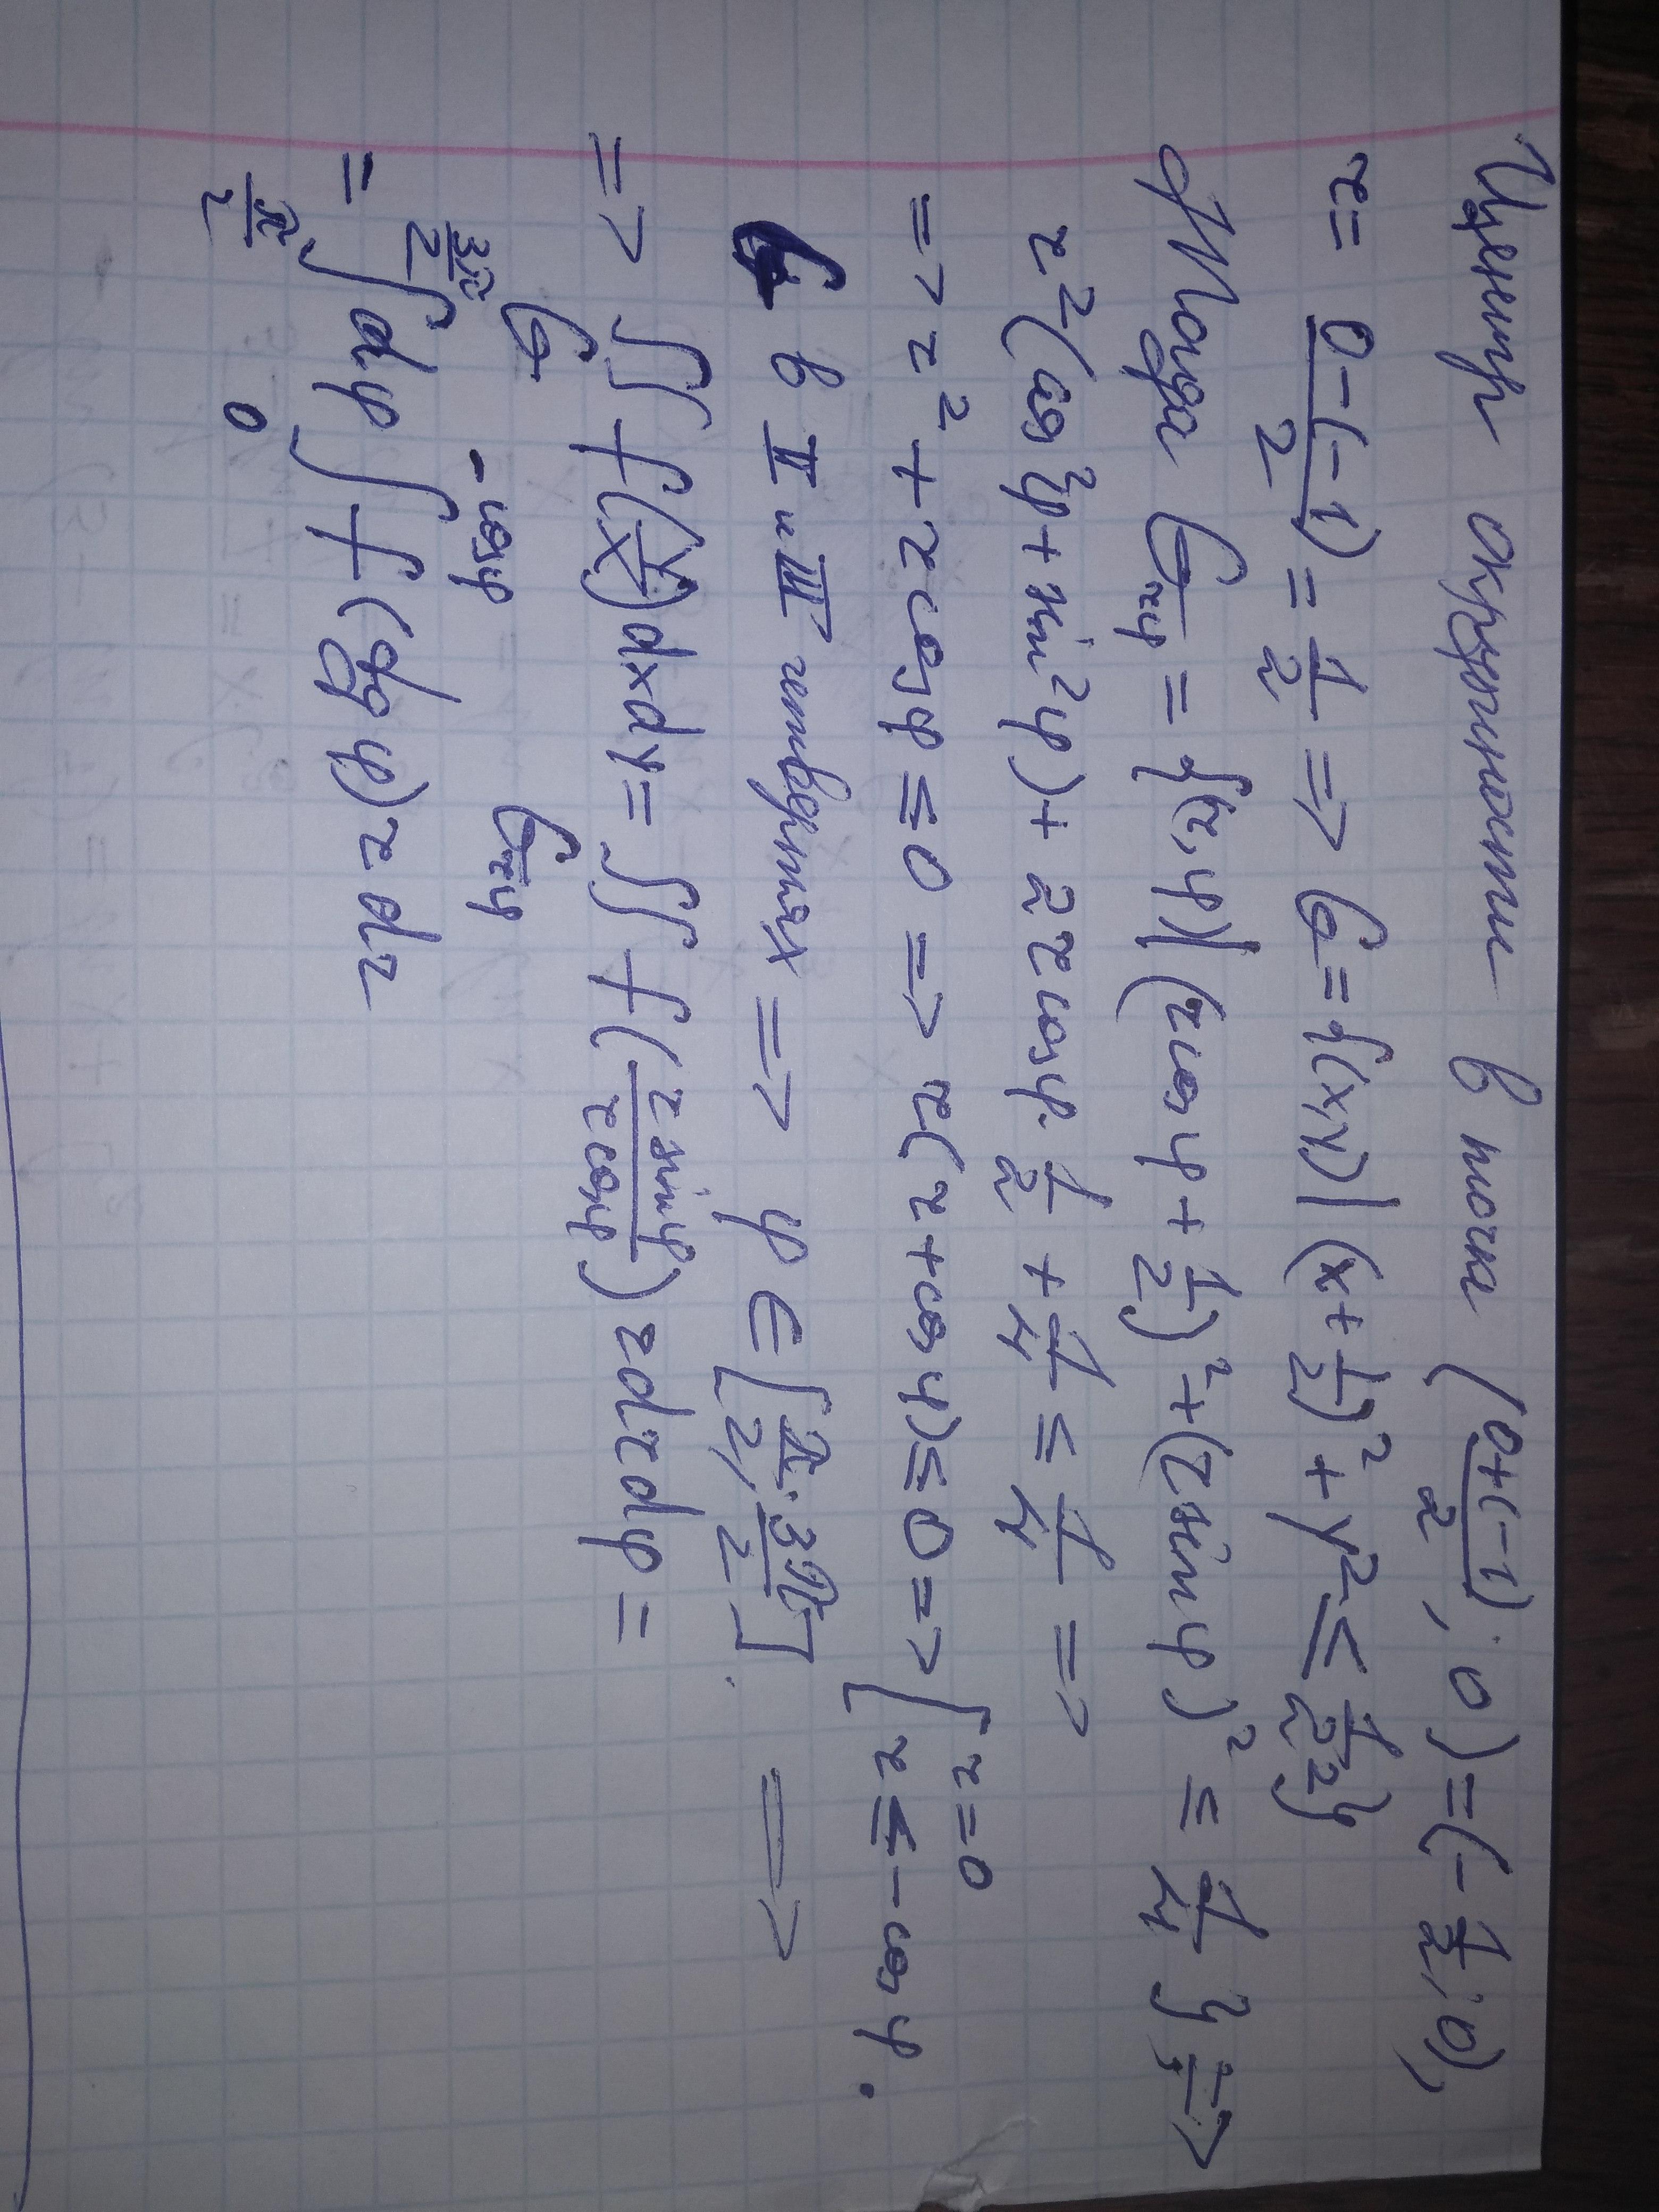 Центр окружности в точке (0+(-1)/2; 0) = (-1/2; 0),
r = 0-(-1)/2 = 1/2 => G = {(x,y)| (x+1/2)² + y² ≤ 1/2²}
Тогда G_rφ = {(r,φ)| (r cosφ + 1/2)² + (r sinφ)² ≤ 1/4} =>
r²(cos²φ + sin²φ) + 2r cosφ · 1/2 + 1/4 ≤ 1/4 =>
=> r² + r cosφ ≤ 0 => r(r + cosφ) ≤ 0 => [ r = 0 r ≤ -cosφ.
G в II и III четвертях => φ ∈ [π/2; 3π/2]. =>
=> ∬_G f(y/x)dxdy = ∬_G_rφ f(r sinφ/r cosφ) r dr dφ =
= ∫_{π/2}^{3π/2} dφ ∫_0^{-cosφ} f(tgφ) r dr